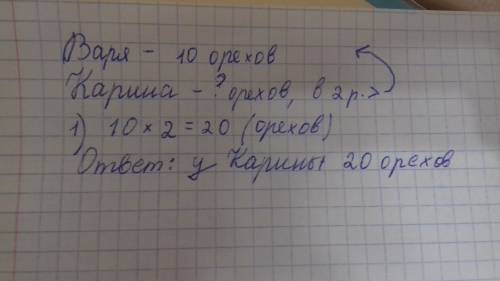 Варя - 10 орехов
Карина - ? орехов, в 2 р. >
1) 10 × 2 = 20 (орехов)
Ответ: у Карины 20 орехов